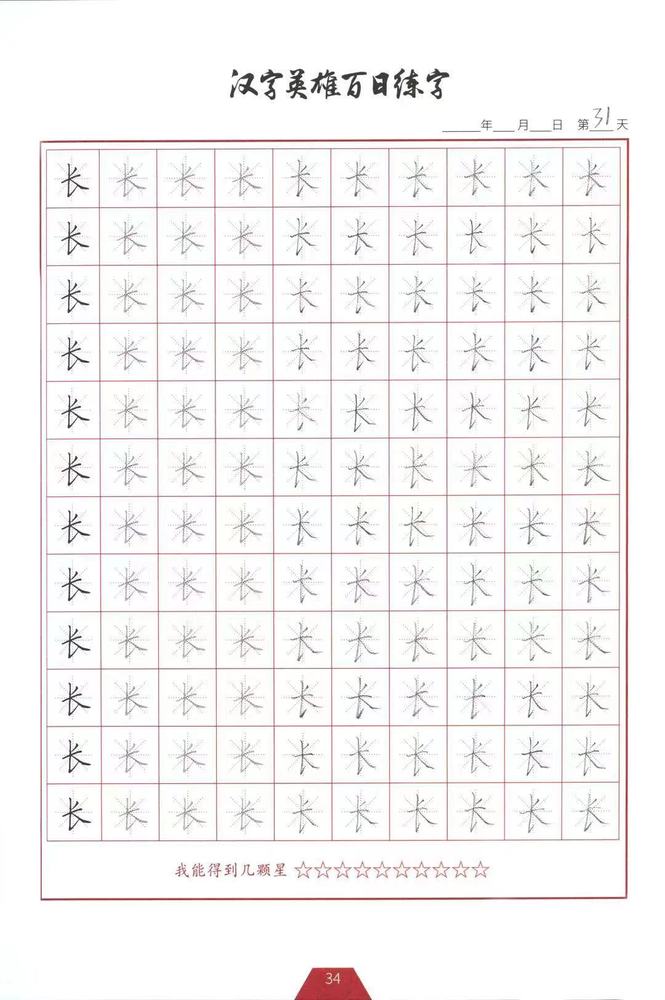 汉字英雄百日练字
年 月 日 第31天
长 长 长 长 长 长 长 长 长 长
长 长 长 长 长 长 长 长 长 长
长 长 长 长 长 长 长 长 长 长
长 长 长 长 长 长 长 长 长 长
长 长 长 长 长 长 长 长 长 长
长 长 长 长 长 长 长 长 长 长
长 长 长 长 长 长 长 长 长 长
长 长 长 长 长 长 长 长 长 长
长 长 长 长 长 长 长 长 长 长
长 长 长 长 长 长 长 长 长 长
长 长 长 长 长 长 长 长 长 长
长 长 长 长 长 长 长 长 长 长
我能得到几颗星 ☆☆☆☆☆☆☆☆☆☆
34